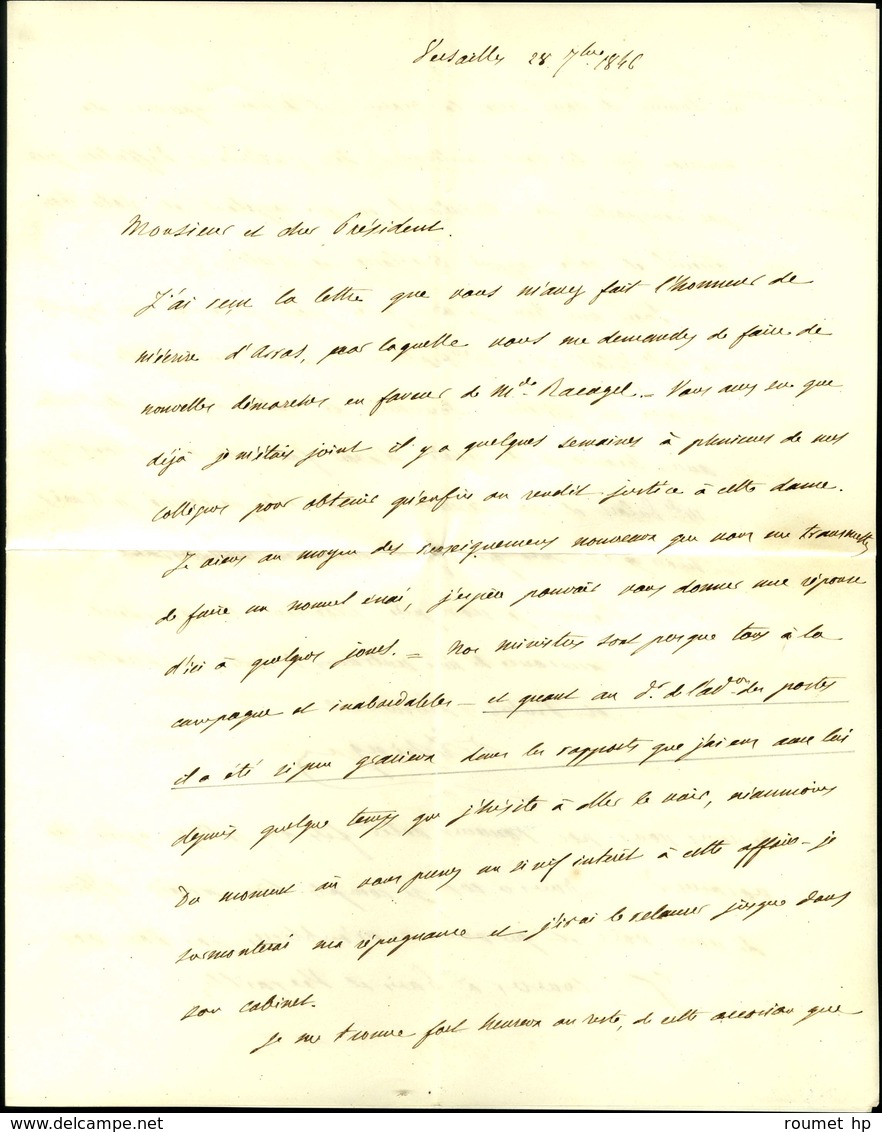 Versailles 28 7bre 1846
Monsieur et cher Président.
J'ai reçu la lettre que vous m'avez fait l'honneur de
m'écrire d'Arras, par laquelle vous me demandez de faire de
nouvelles démarches en faveur de Mde Racagel. — Vous avez su que
déjà je m'étais joint il y a quelques semaines à plusieurs de mes
collègues pour obtenir qu'enfin on rendit justice à cette dame.
Je viens au moyen des renseignemens nouveaux que vous me transmettez
de faire un nouvel essai, j'espère pouvoir vous donner une réponse
d'ici à quelques jours. = Nos ministres sont presque tous à la
campagne et inabordables — et quant au dr. de l'adon des postes
il a été si peu gracieux dans les rapports que j'ai eus avec lui
depuis quelque temps que j'hésite à aller le voir, néanmoins
Du moment où vous prenez un si vif intérêt à cette affaire — je
surmonterai ma répugnance et j'irai le relancer jusque dans
son cabinet.
Je me trouve fort heureux au reste, de cette occasion que
roumet hp